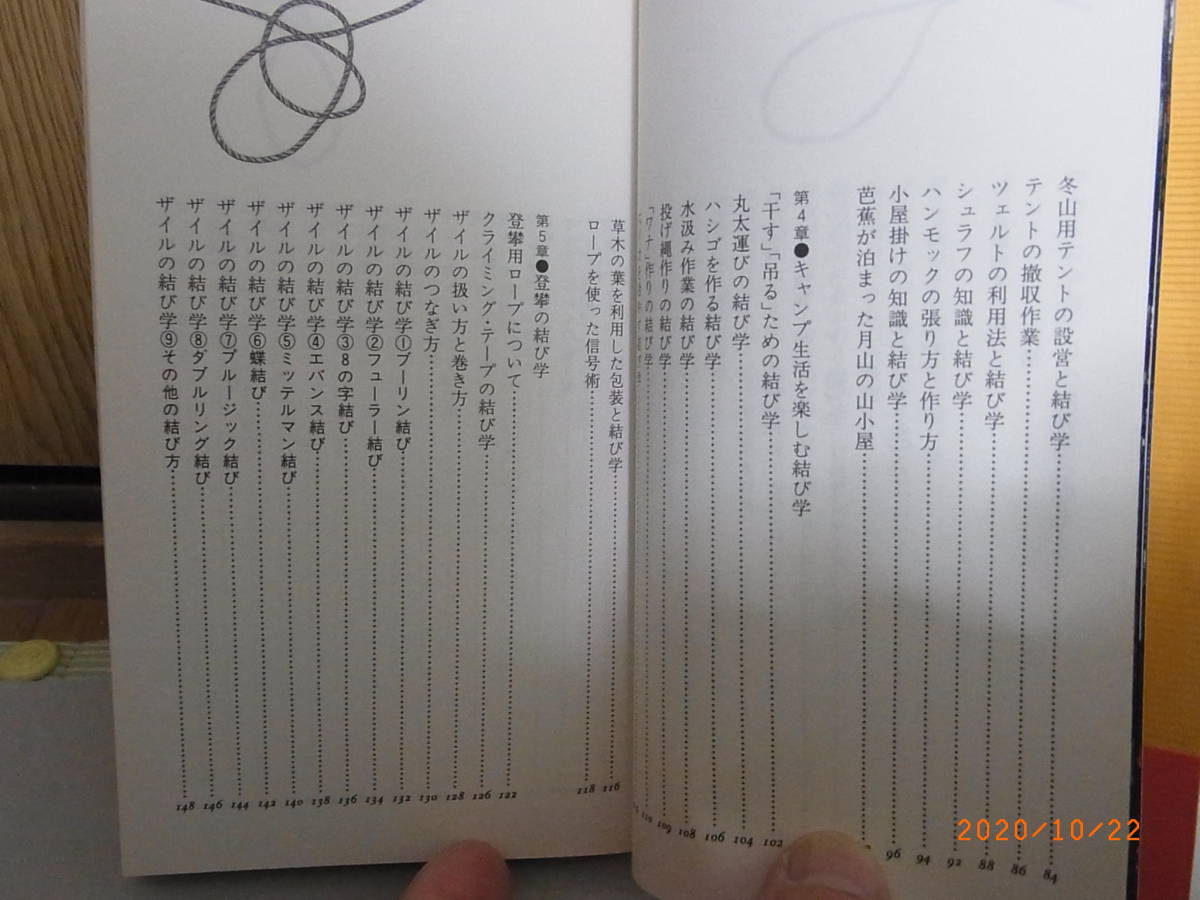 冬山用テントの設営と結び学 84
テントの撤収作業 86
ツェルトの利用法と結び学 88
シュラフの知識と結び学 92
ハンモックの張り方と作り方 94
小屋掛けの知識と結び学 96
芭蕉が泊まった月山の山小屋
第4章●キャンプ生活を楽しむ結び学
「干す」「吊る」ための結び学 102
丸太運びの結び学 104
ハシゴを作る結び学 106
水汲み作業の結び学 108
投げ縄作りの結び学 109
「ワナ」作りの結び学 110
草木の葉を利用した包装と結び学 116
ロープを使った信号術 118
第5章●登攀の結び学
登攀用ロープについて 122
クライミング・テープの結び学 126
ザイルの扱い方と巻き方 128
ザイルのつなぎ方 130
ザイルの結び学①ブーリン結び 132
ザイルの結び学②フューラー結び 134
ザイルの結び学③8の字結び 136
ザイルの結び学④エバンス結び 138
ザイルの結び学⑤ミッテルマン結び 140
ザイルの結び学⑥蝶結び 142
ザイルの結び学⑦プルージック結び 144
ザイルの結び学⑧ダブルリング結び 146
ザイルの結び学⑨その他の結び方 148
2020/10/22